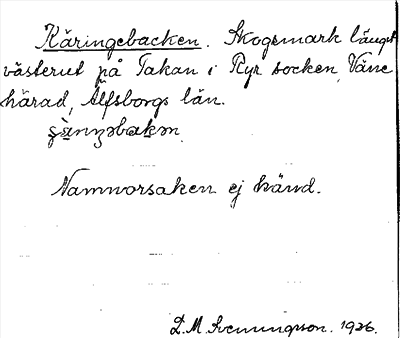 Käringebacken. Skogsmark längst
västerut på Takan i Ryr socken, Väne
härad, Älfsborgs län.
Namnorsaken ej känd.
D.M. Svenningson. 1926.